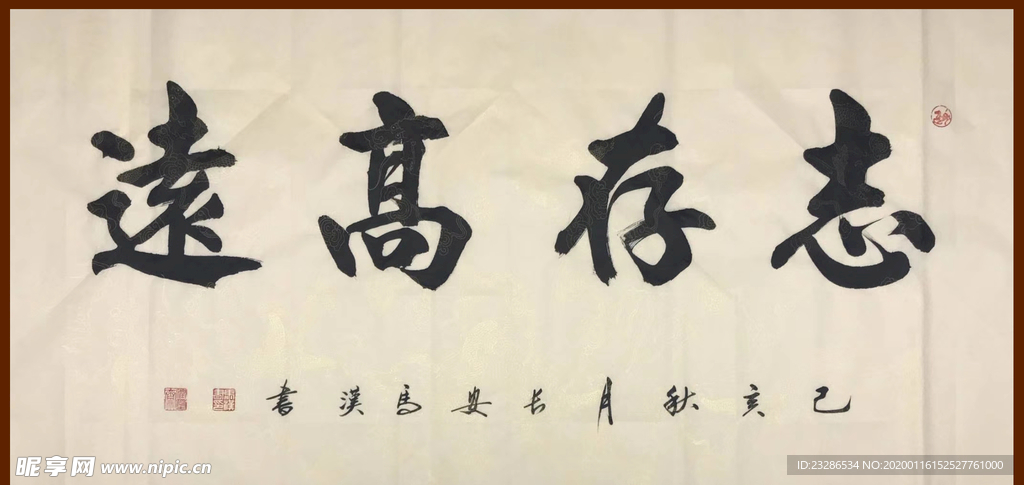 志存高遠
己亥秋月长安馬漢書
昵享网 www.nipic.cn
ID:23286534 NO:20200116152527761000